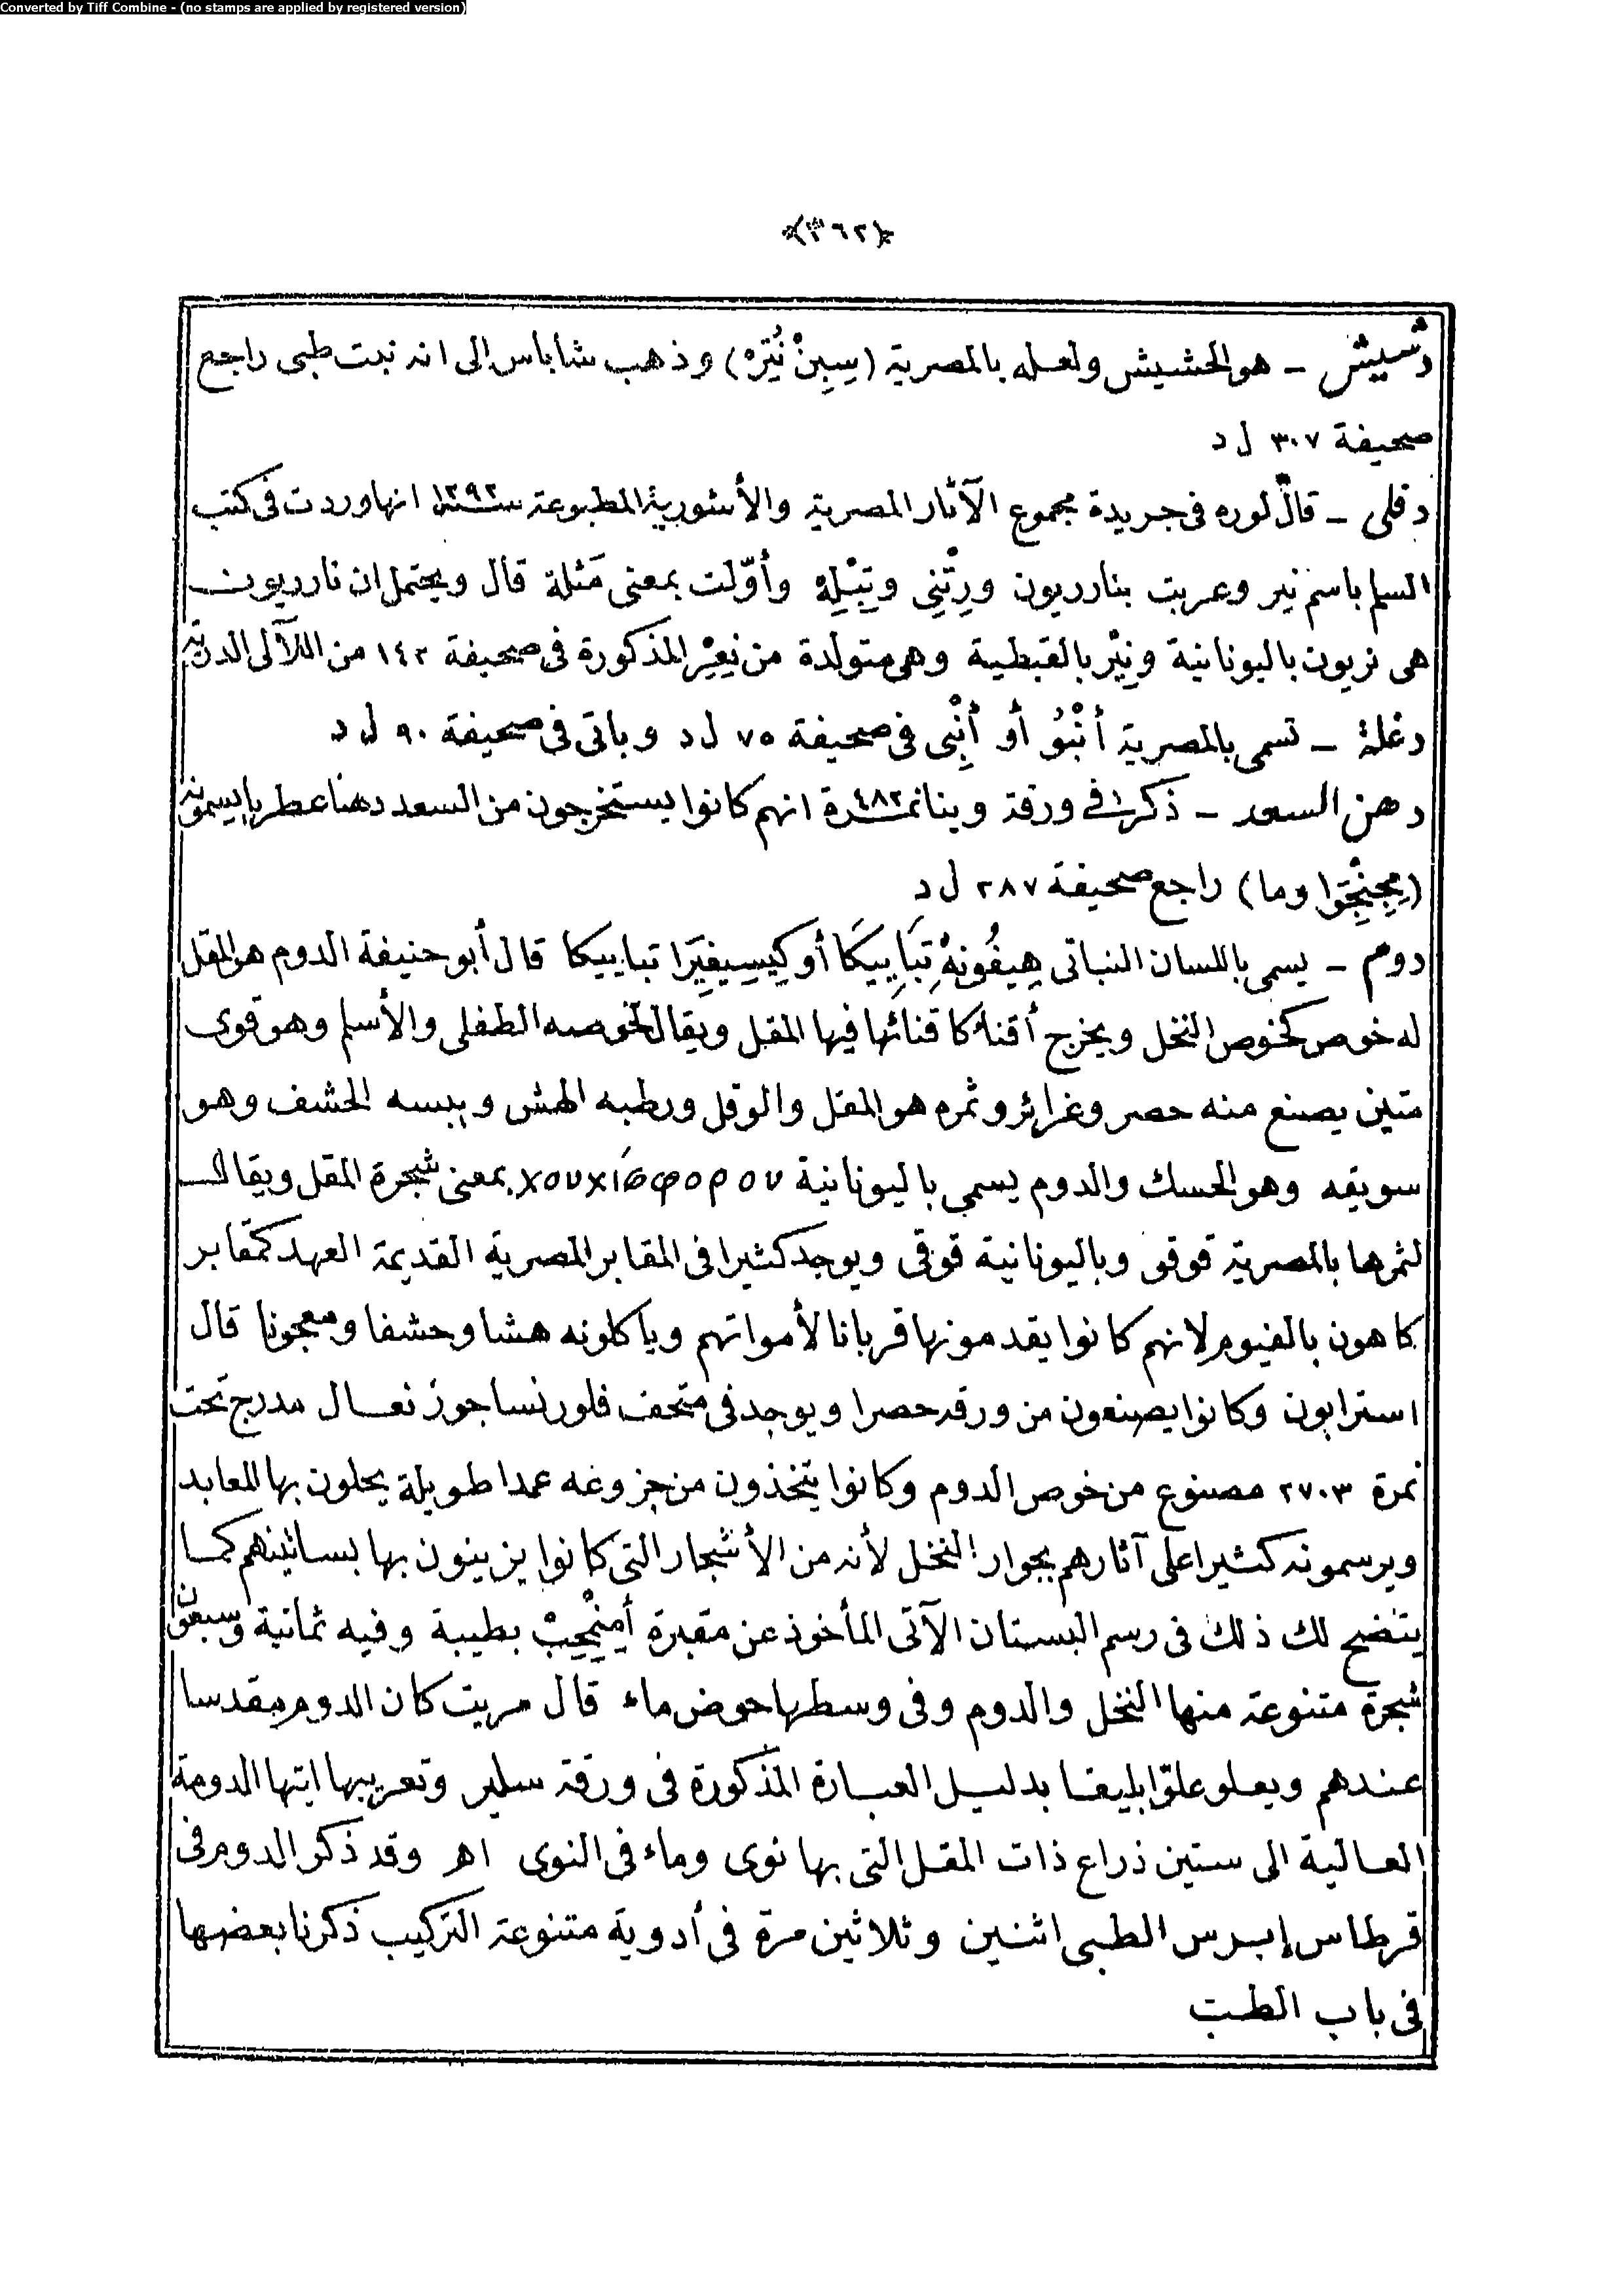 Converted by Tiff Combine - (no stamps are applied by registered version)
﴿٣٦٢﴾
دشيش ـ هو الحشيش ولعله بالمصرية (سِبِنْ نُتِرْه) وذهب شاباس الى انه نبت طبى راجع
صحيفة ٣٠٧ ل د
دفلى ـ قال لوره فى جريدة مجموع الآثار المصرية والأشورية المطبوعة انها وردت فى كتب
السلم باسم نير وعربت بناردريون ورِتْنِى وتِبْلِهْ وأوّلت بمعنى مَثلة قال ويحتمل ان ناردريون
هى نريون باليونانية ونِيْر بالقبطية وهى متولدة من نِعِرْ المذكورة فى صحيفة ١٤٢ من اللآلى الدرية
دغلة ـ تسمى بالمصرية أَنْبُو أو أَنْبِى فى صحيفة ٧٥ ل د وباتى فى صحيفة ٩٠ ل د
دهن السعد ـ ذكر فى ورقة وينا نمرة ٤٨٢ انهم كانوا يستخرجون من السعد دهنا عطريا يسمونه
(مِجِنْجِوَا وما) راجع صحيفة ٢٨٧ ل د
دوم ـ يسمى باللسان النباتى هِيفُونِهْ تِبَايِيكَا أو كِيسِيفِيَرا تبابيكا قال أبو حنيفة الدوم هو المقل
له خوص كخوص النخل ويخرج أقناء كاقنائها فيها المقل ويقال لخوصه الطفلى والأسلم وهو قوى
متين يصنع منه حصر وغرائر وثمره هو المقل والوقل ورطبه الهش ويبسه الحشف وهو
سويقه وهو الحسك والدوم يسمى باليونانية χουχιόφορου بمعنى شجرة المقل ويقال
لثمرها بالمصرية قوقو وباليونانية قوقى ويوجد كثيرا فى المقابر المصرية القديمة العهد كمقابر
كاهون بالفيوم لانهم كانوا يقدمونها قربانا لأمواتهم وياكلونه هشا وحشفا ومعجونا قال
استرابون وكانوا يصنعون من ورقه حصرا ويوجد فى متحف فلورنسا جوز نعال مدرج تحت
نمرة ٢٧٠٣ مصنوع من خوص الدوم وكانوا يتخذون من جزوعه عمدا طويلة يحلون بها المعابد
ويرسمونه كثيرا على آثارهم بجوار النخل لأنه من الأشجار التى كانوا يزينون بها بساتينهم كما
يتضح لك ذلك فى رسم البستان الآتى المأخوذ عن مقبرة أَمِنْحِبْ بطيبة وفيه ثمانية وسبعون
شجرة متنوعة منها النخل والدوم وفى وسطها حوض ماء قال مريت كان الدوم مقدسا
عندهم ويعلو علوّا بليغا بدليل العبارة المذكورة فى ورقة سلير وتعريبها ايتها الدومة
العالية الى ستين ذراع ذات المقل التى بها نوى وماء فى النوى اهـ وقد ذكر الدوم فى
قرطاس إبرس الطبى اثنين وثلاثين مرة فى أدوية متنوعة التركيب ذكرنا بعضها
فى باب الطب